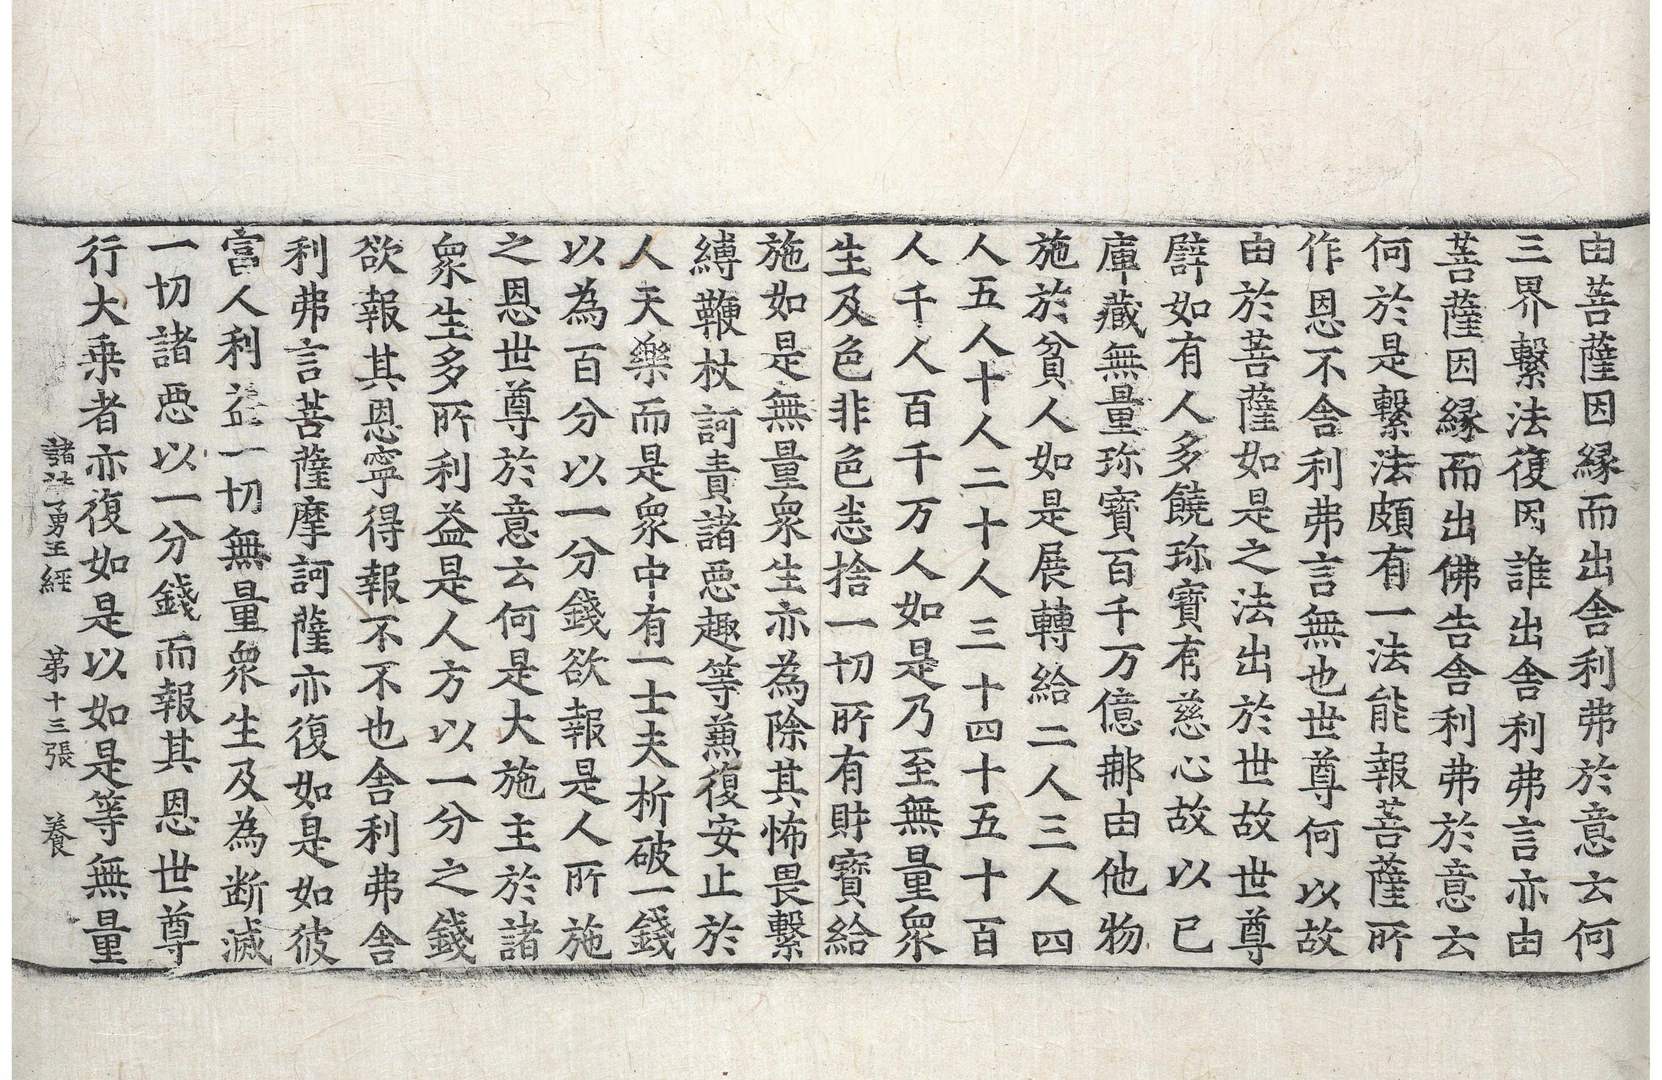 由菩薩因縁而出舎利弗於意云何
三界繫法復因誰出舎利弗言亦由
菩薩因縁而出佛告舎利弗於意云
何於是繫法頗有一法能報菩薩所
作恩不舎利弗言無也世尊何以故
由於菩薩如是之法出於世故世尊
譬如有人多饒珎寶有慈心故以已
庫藏無量珎寶百千万億𨚗由他物
施於貧人如是展轉給二人三人四
人五人十人二十人三十四十五十百
人千人百千万人如是乃至無量衆
生及色非色悉捨一切所有財寶給
施如是無量衆生亦為除其怖畏繫
縛鞭杖訶責諸惡趣等兼復安止於
人天樂而是衆中有一士夫析破一錢
以為百分以一分錢欲報是人所施
之恩世尊於意云何是大施主於諸
衆生多所利益是人方以一分之錢
欲報其恩寧得報不不也舎利弗舎
利弗言菩薩摩訶薩亦復如是如彼
富人利益一切無量衆生及為断滅
一切諸惡以一分錢而報其恩世尊
行大乗者亦復如是以如是等無量
諸法勇王經 第十三張 養